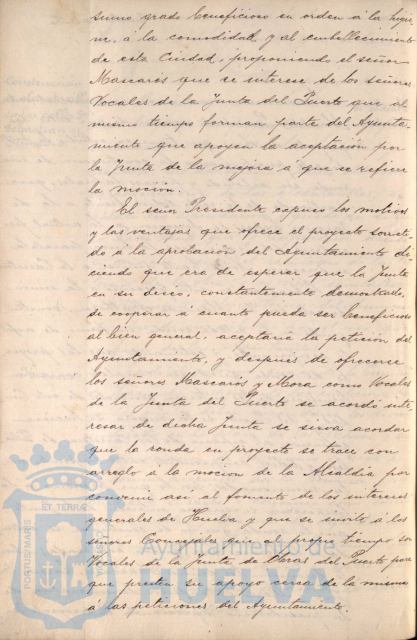 sumo grado beneficioso en orden á la higie
ne, á la comodidad y al embellecimiento
de esta Ciudad, proponiendo el señor
Mascarós que se interese de los señores
Vocales de la Junta del Puerto que al
mismo tiempo forman parte del Ayunta-
miento que apoyen la aceptación por
la Junta de la mejora á que se refiere
la moción.
El señor Presidente expuso los motivos
y las ventajas que ofrece el proyecto someti-
do á la aprobación del Ayuntamiento di-
ciendo que era de esperar que la Junta
en su deseo, constantemente demostrado,
de cooperar á cuanto pueda ser beneficioso
al bien general, aceptaría la petición del
Ayuntamiento, y después de ofrecerse
los señores Mascarós y Mora como Vocales
de la Junta del Puerto se acordó inte
resar de dicha Junta se sirva acordar
que la ronda en proyecto se trace con
arreglo á la moción de la Alcaldía por
convenir así al fomento de los intereses
generales de Huelva y que se invite á los
señores Concejales que al propio tiempo son
Vocales de la Junta de Obras del Puerto para
que presten su apoyo cerca de la misma
á las peticiones del Ayuntamiento.
PORTUS MARIS
ET TERRÆ
CUSTODIA
Ayuntamiento de
HUELVA